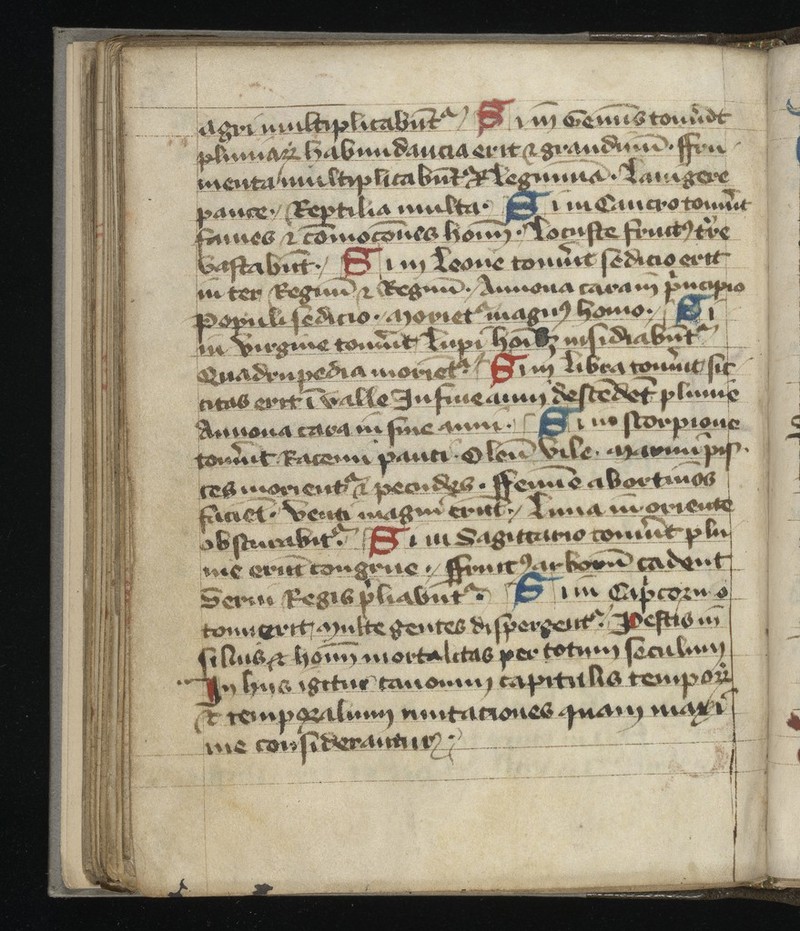 agri multiplicabūt᷒ / Si in Geminis tonu͛it
pluuiaꝝ habundancia erit ⁊ grandinū · ffru
menta multiplicabūt᷒ ⁊ legumīa · lanigere
pauce / Reptilia multa · Si in Cancro tonu͛it
fames ⁊ cōmocōnes hoīm · locuste fructꝰ t͛re
vastabūt / Si in leone tonu͛it sedicio erit
in ter Regnū ⁊ Regnū · Annona cara in p͛ncipio
Populi sedicio · moriet᷒ magnꝰ homo · Si
in virgine tonu͛it lupi hoībꝫ insidiabūt᷒
Quadrupedia moriēt᷒ / Si in libra tonu͛it sic
citas erit ī valle In fine anni descēdēt pluuie
Annona cara in fine anni · Si in scorpione
tonu͛it Racemi pauci · Oleū vile · marini pis
ces morient᷒ ⁊ pecudes · ffemīe abortiuos
faciēt · venti magni erūt / luna in oriente
obscurabit᷒ · Si in Sagittario tonu͛it plu
uie erūt congrue / ffructꝰ arborū cadent
Serui Regis p͛liabūt᷒ · Si in Cap͛corno
tonuerit multe gentes dispergent᷒ · Pestis in
siluis ⁊ hoīm mortalitas per totum seculum
In hijs igitur canonum capitulis tempoꝝ
⁊ temporalium mutaciones quam maxi
me considerantur /